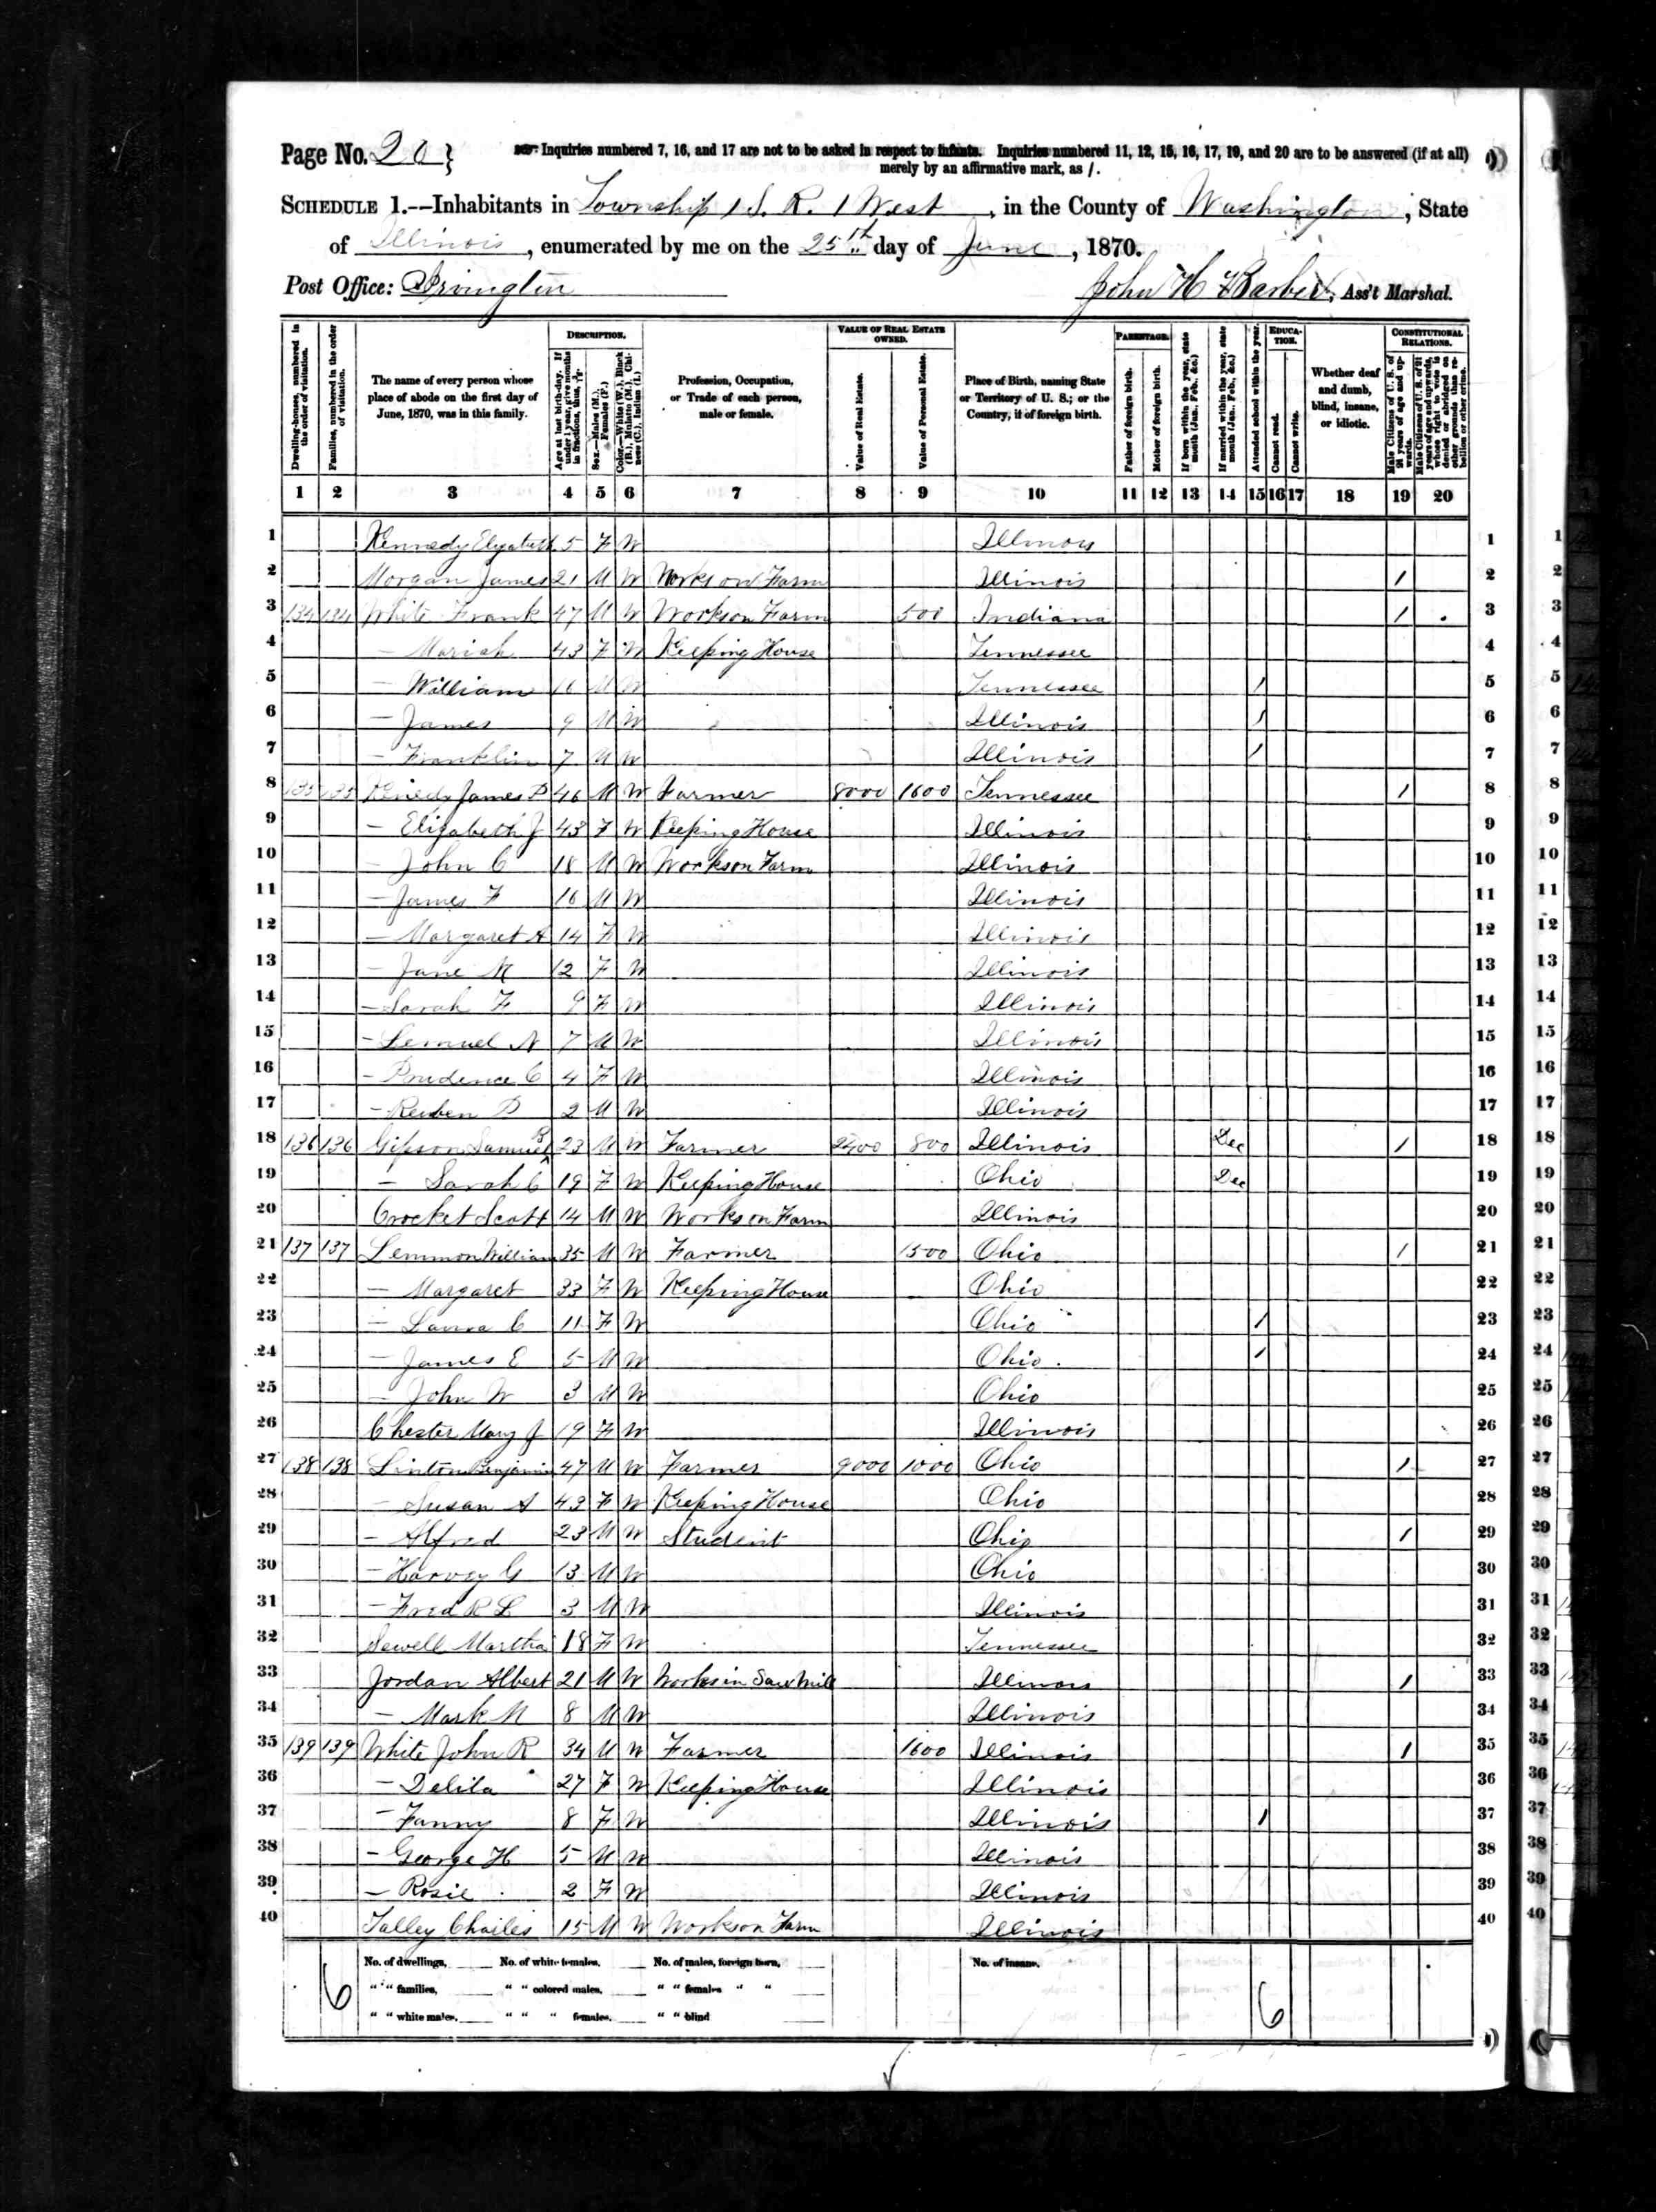 Page No. 20
Inquiries numbered 7, 16, and 17 are not to be asked in respect to infants. Inquiries numbered 11, 12, 15, 16, 17, 19, and 20 are to be answered (if at all)
merely by an affirmative mark, as /.
SCHEDULE 1.--Inhabitants in Township 1 S. R. 1 West, in the County of Washington, State
of Illinois, enumerated by me on the 25th day of June, 1870.
Post Office: Irvington
John H Barber, Ass't Marshal.
Dwelling-houses, numbered in the order of visitation.
Families, numbered in the order of visitation.
The name of every person whose place of abode on the first day of June, 1870, was in this family.
DESCRIPTION.
Age at last birth-day. If under 1 year, give months in fractions, thus,
Sex.--Males (M.), Females (F.)
Color.--White (W.), Black (B.), Mulatto (M.), Chinese (C.), Indian (I.)
Profession, Occupation, or Trade of each person, male or female.
VALUE OF REAL ESTATE OWNED.
Value of Real Estate.
Value of Personal Estate.
Place of Birth, naming State or Territory of U. S.; or the Country, if of foreign birth.
PARENTAGE.
Father of foreign birth.
Mother of foreign birth.
If born within the year, state month (Jan., Feb., &c.)
If married within the year, state month (Jan., Feb., &c.)
Attended school within the year.
EDUCATION.
Cannot read.
Cannot write.
Whether deaf and dumb, blind, insane, or idiotic.
CONSTITUTIONAL RELATIONS.
Male Citizens of U. S. of 21 years of age and upwards.
Male Citizens of U. S. of 21 years of age and upwards, whose right to vote is denied or abridged on other grounds than rebellion or other crime.
1 2 3 4 5 6 7 8 9 10 11 12 13 14 15 16 17 18 19 20
1 Kennedy Elizabeth 5 F W Illinois 1
2 Morgan James 21 M W Works on Farm Illinois / 2
3 134 134 White Frank 47 M W Works on Farm 500 Indiana / 3
4 — Mariah 43 F W Keeping House Tennessee 4
5 — William 16 M W Tennessee / 5
6 — James 9 M W Illinois / 6
7 — Franklin 7 M W Illinois / 7
8 135 135 James P 46 M W Farmer 8000 1600 Tennessee / 8
9 — Elizabeth J 43 F W Keeping House Illinois 9
10 — John C 18 M W Works on Farm Illinois 10
11 — James F 16 M W Illinois 11
12 — Margaret A 14 F W Illinois 12
13 — Jane M 12 F W Illinois 13
14 — Sarah F 9 F W Illinois 14
15 — Lemuel N 7 M W Illinois 15
16 — Prudence C 4 F W Illinois 16
17 — Reuben P 2 M W Illinois 17
18 136 136 Gipson Samuel B 23 M W Farmer 2400 800 Illinois Dec / 18
19 — Sarah C 19 F W Keeping House Ohio Dec 19
20 Crocket Scott 14 M W Works on Farm Illinois 20
21 137 137 Lemmon William 35 M W Farmer 1500 Ohio / 21
22 — Margaret 33 F W Keeping House Ohio 22
23 — Laura C 11 F W Ohio / 23
24 — James E 5 M W Ohio / 24
25 — John W 3 M W Ohio 25
26 Chester Mary J 19 F W Illinois 26
27 138 138 Linton Benjamin 47 M W Farmer 9000 1000 Ohio / 27
28 — Susan A 43 F W Keeping House Ohio 28
29 — Alfred 23 M W Student Ohio / 29
30 — Harvey G 13 M W Ohio 30
31 — Fred R L 3 M W Illinois 31
32 Sewell Martha 18 F W Tennessee 32
33 Jordan Albert 21 M W Works in Saw Mill Illinois / 33
34 — Mark N 8 M W Illinois 34
35 139 139 White John R 34 M W Farmer 1600 Illinois / 35
36 — Delila 27 F W Keeping House Illinois 36
37 — Fanny 8 F W Illinois / 37
38 — George H 5 M W Illinois 38
39 — Rosie 2 F W Illinois 39
40 Talley Charles 15 M W Works on Farm Illinois 40
No. of dwellings, No. of white females, No. of males, foreign born, No. of insane,
" " families, " " colored males, " " females " "
" " white males, " " " females, " " blind
6 6